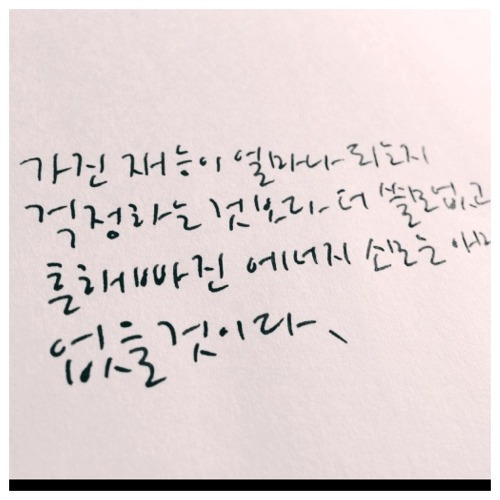 가진 재능이 얼마나 되는지
걱정하는 것보다 더 쓸모없고
흘해빠진 에너지 소모는 아마
없을것이다.